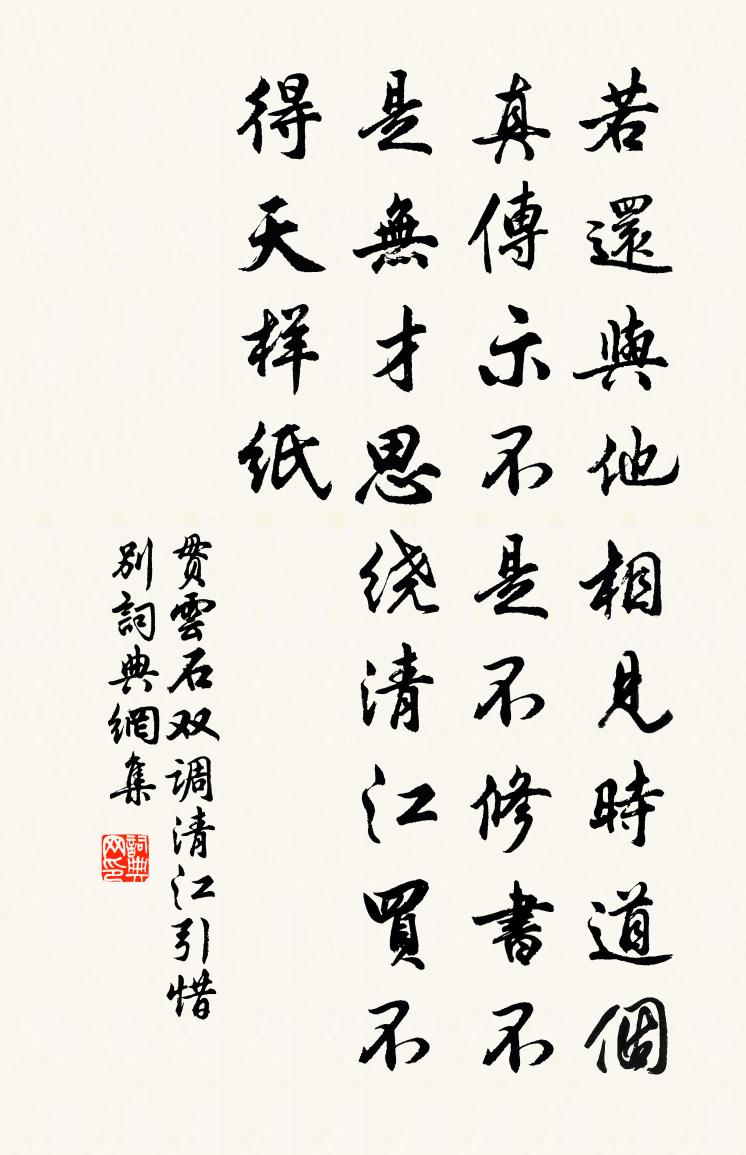 若還與他相見時道個
真傳示不是不修書不
是無才思绕清江買不
得天样纸
贯雲石双调清江引惜
别詞典網集
詞典网印